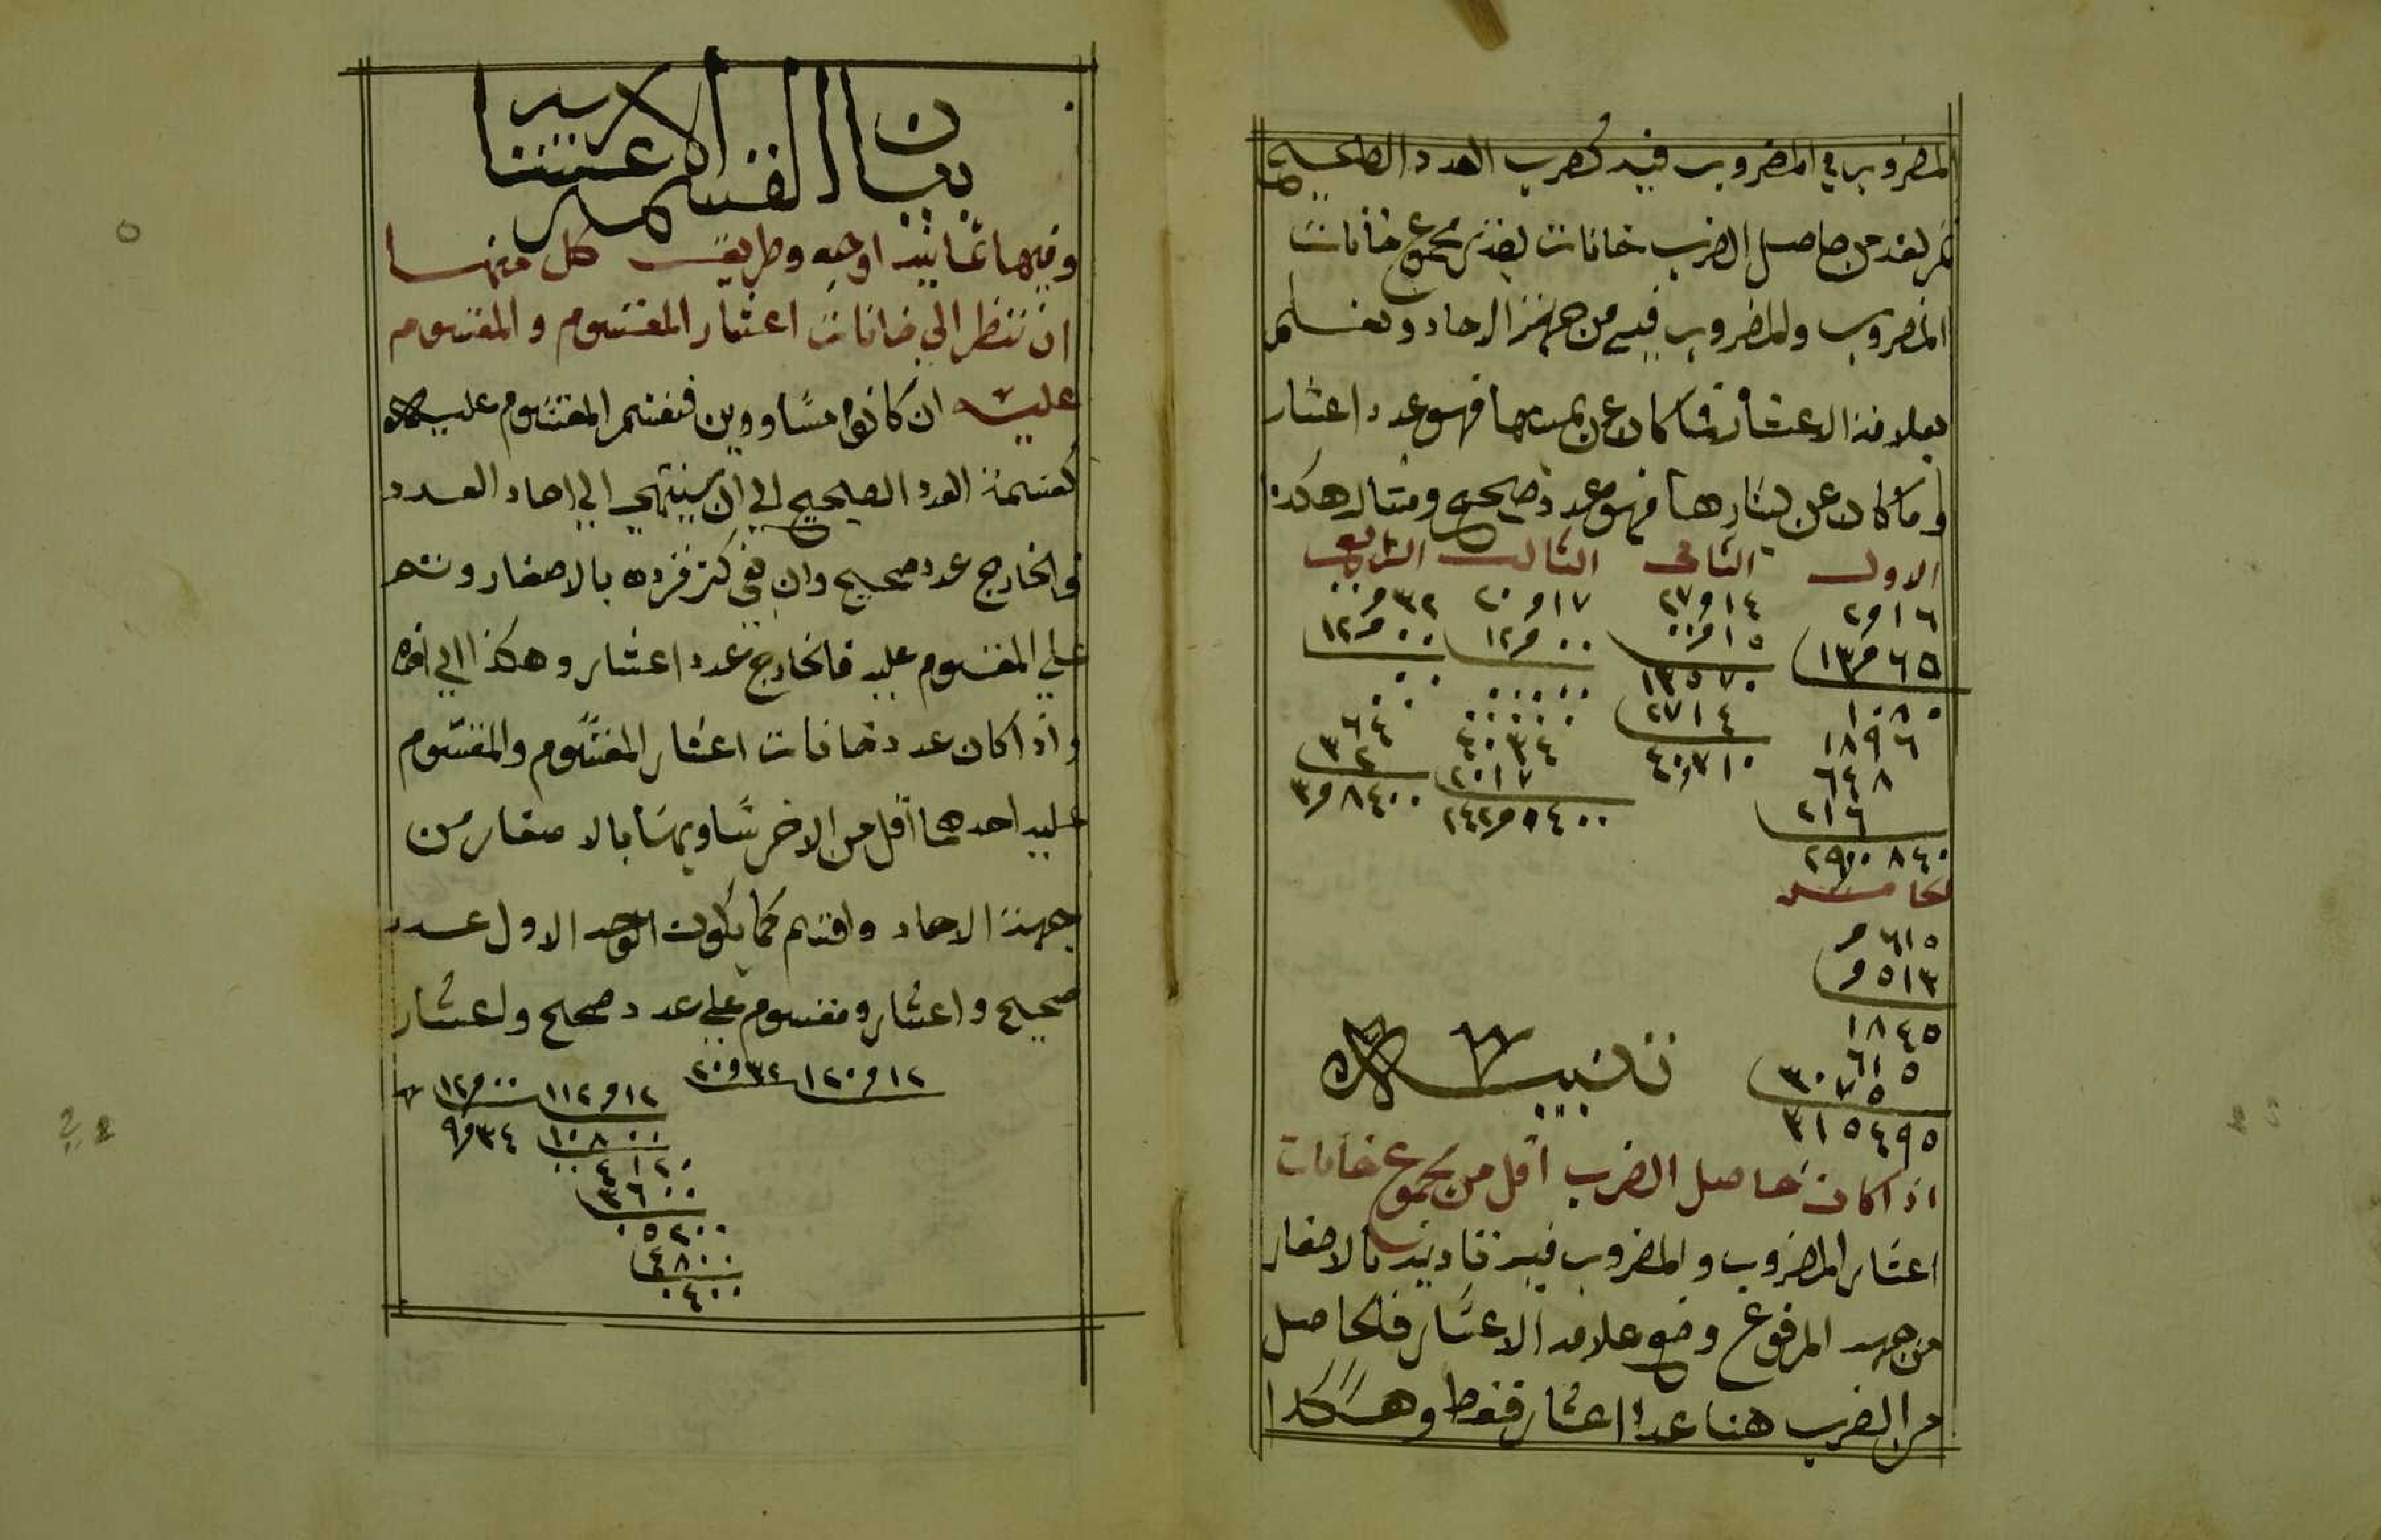 المضروب في المضروب فيه كضرب العدد الصحيح
ثم تعد من حاصل الضرب خانات بقدر مجموع خانات
المضروب والمضروب فيه من جهة الاحاد وتعلم
بعلامة الاعشار فما كان عن يمينها فهو عدد اعشار
وما كان عن يسارها فهو عدد صحيح ومثاله هكذا
الاول الثانى الثالث الرابع
٢و٢١٦ ٢٧و١٤ ٢٠و١٧ و٣٢
١٣و٦٥ ١٥و٠٠ ١٢و٠٠ ١٢و٠٠
١٠٨٠ ١٣٥٧٠
١٨٩٦ ٢٧١٤ ٤٠٣٤ ٦٤
٦٤٨ ٤٠٧١٠ ٢٠١٧ ٣٢
٢١٦ ٢٤٢و٠٤٠٠ ٣و٨٤٠٠
٢٩و٠٠٨٤٠
الخامس
و٦١٥
و٥١٣
١٨٤٥
٦١٥
٣٠٧٥
٣١٥٤٩٥
تنبيه
اذا كان حاصل الضرب اقل من مجموع خانات
اعشار المضروب والمضروب فيه بالاصفار
من جهة المرفوع وضع علامة الاعشار فالحاصل
من الضرب هنا عدد اعشار فقط وهكذا
بيان القسمة الاعشارية
وفيها ثمانية اوجه وطريقة كل منها
ان تنظر الي خانات اعشار المقسوم والمقسوم
عليه ان كانوا مساووين فتقسم المقسوم عليه
كقسمة العدد الصحيح الي ان ينتهي الي احاد العدد
فالخارج عدد صحيح وان بقي كسر فزده بالاصفار وقسم
علي المقسوم عليه فالخارج عدد اعشار وهكذا الي اخره
واذا كان عدد خانات اعشار المقسوم والمقسوم
عليه احدهما اقل من الاخر تساويهما بالاصفار من
جهة الاحاد واقسم كما يكون الوجه الاول عدد
صحيح واعشار ومقسوم علي عدد صحيح واعشار
١٢٠و١٢ ٢٠و٣٢
١١٢و١٢ ١٢و٠٠
١٠٨٠٠ ٩و٣٤
٤١٢٠
٣٦٠٠
٠٥٢٠٠
٤٨٠٠
٠٤٠٠